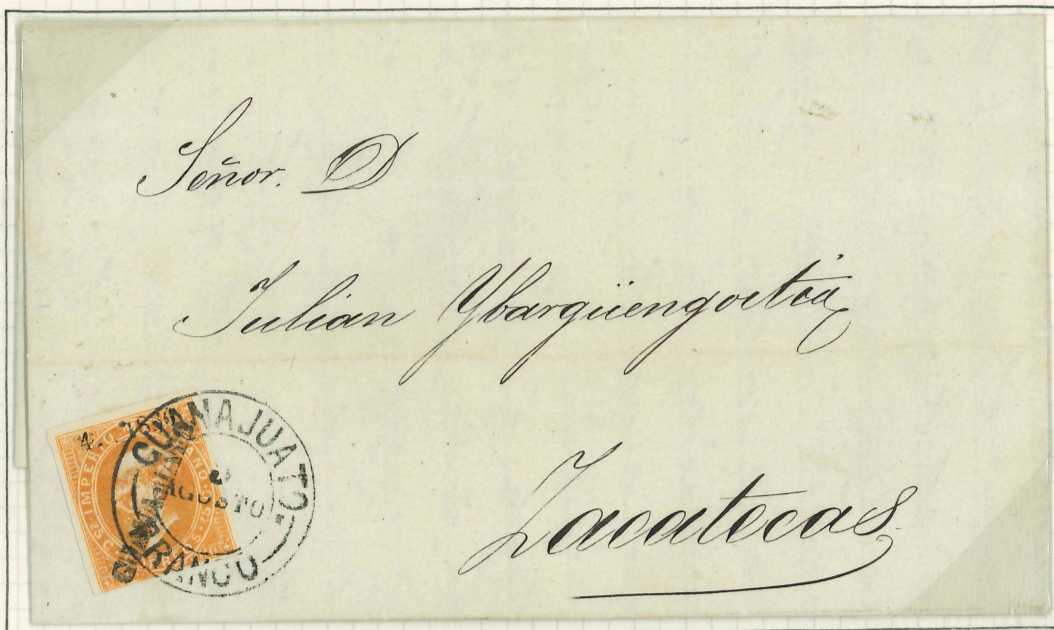 Señor. D
Julian Ybargüengoitia
Zacatecas
GUANAJUATO
AGOSTO
FRANCO
IMPERIO